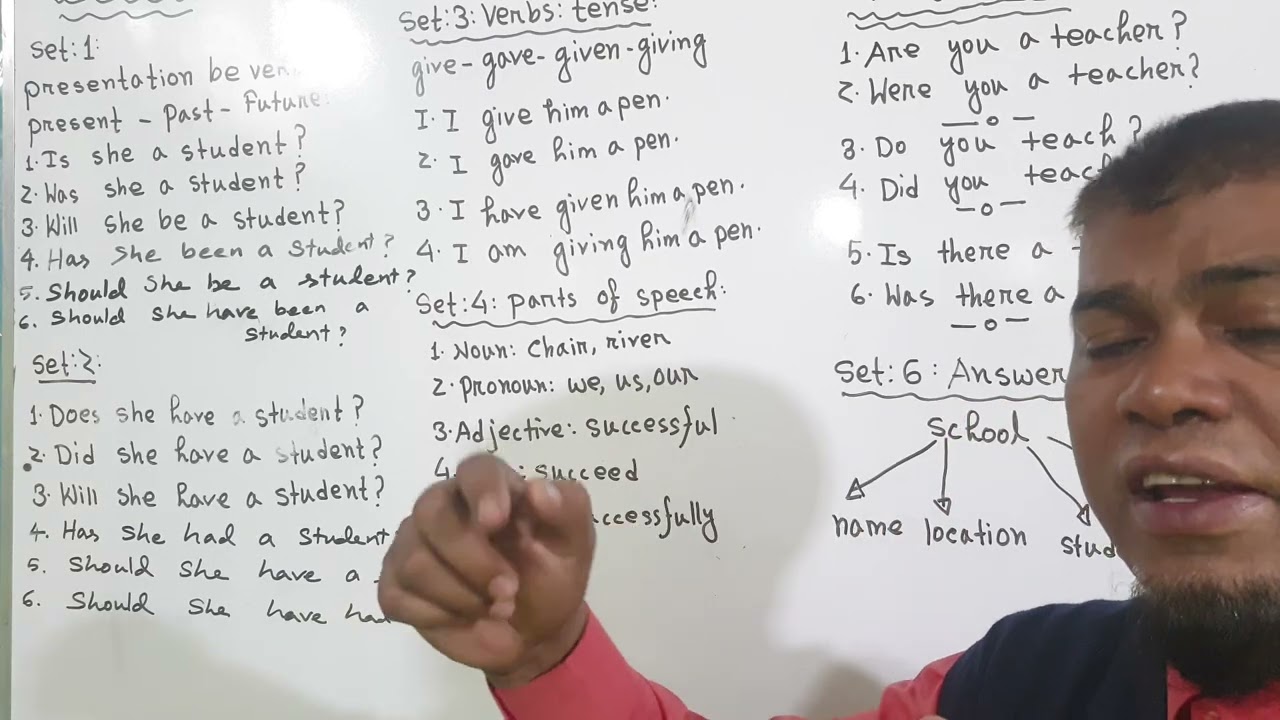 Set:1:
presentation be ver
present - Past - Future:
1. Is she a student?
2. Was she a student?
3. Will she be a student?
4. Has she been a student?
5. Should she be a student?
6. Should she have been a
student?
Set:2:
1. Does she have a student?
2. Did she have a student?
3. Will she have a student?
4. Has she had a student
5. Should she have a
6. Should she have had
Set:3: Verbs: tense:
give - gave - given - giving
I. I give him a pen.
2. I gave him a pen.
3. I have given him a pen.
4. I am giving him a pen.
Set:4: parts of speech:
1. Noun: Chair, river
2. Pronoun: we, us, our
3. Adjective: successful
4. : succeed
ccessfully
1. Are you a teacher?
2. Were you a teacher?
—o—
3. Do you teach?
4. Did you teach
—o—
5. Is there a
6. Was there a
—o—
Set: 6: Answer
school
name location stud